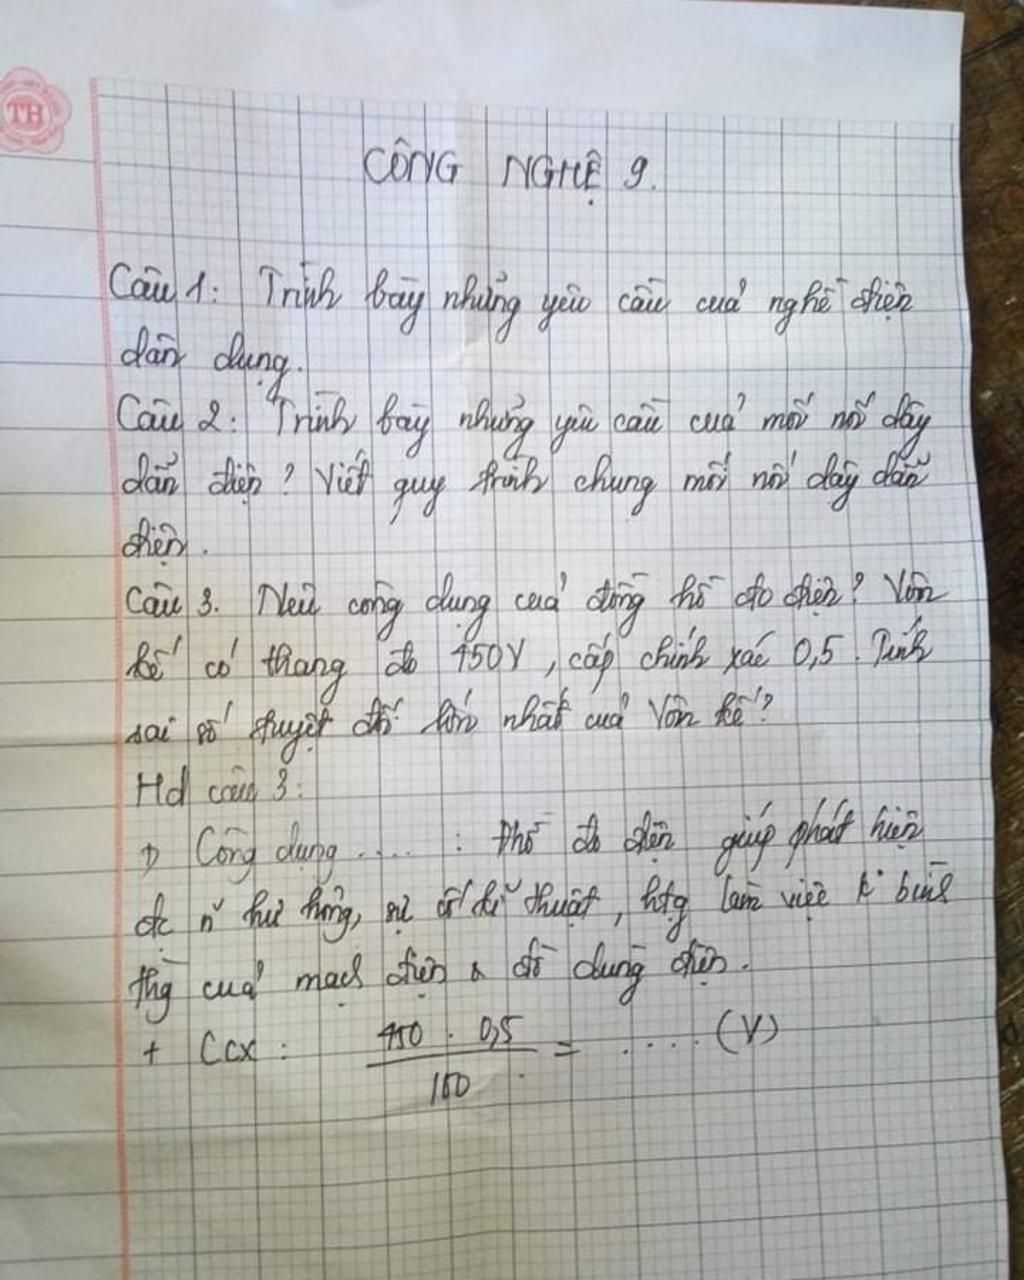 TH
CÔNG NGHỆ 9.
Câu 1: Trình bày những yêu cầu của nghề điện
dân dụng.
Câu 2: Trình bày những yêu cầu của mối nối dây
dẫn điện? Viết quy trình chung mối nối dây dẫn
điện.
Câu 3. Nêu công dụng của đồng hồ đo điện? Vôn
kế có thang đo 450V, cấp chính xác 0,5. Tính
sai số tuyệt đối lớn nhất của Vôn kế?
Hd câu 3:
+) Công dụng .... : Đhồ đo điện giúp phát hiện
đc n~ hư hỏng, sự cố kĩ thuật, htg làm việc k bình
thg của mạch điện & đồ dùng điện.
+ Ccx: 450 . 0,5 / 100 = ..... (V)